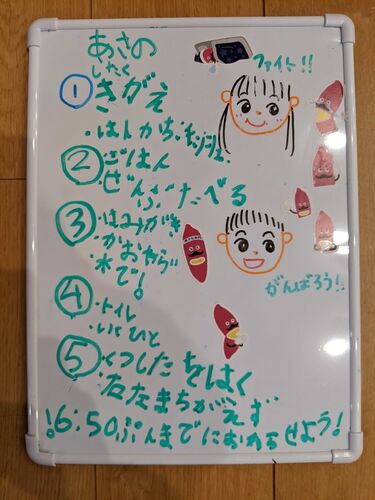 あさの
したく
ファイト!!
① きがえ
・はんかち・ティッシュ
② ごはん
ぜんぶたべる
③ ・はみがき
・かおあらう
・水で!
がんばろう!
④ ・トイレ
⑤ くつしたをはく
・左右まちがえず
!6:50ぷんまでにおわらせよう!